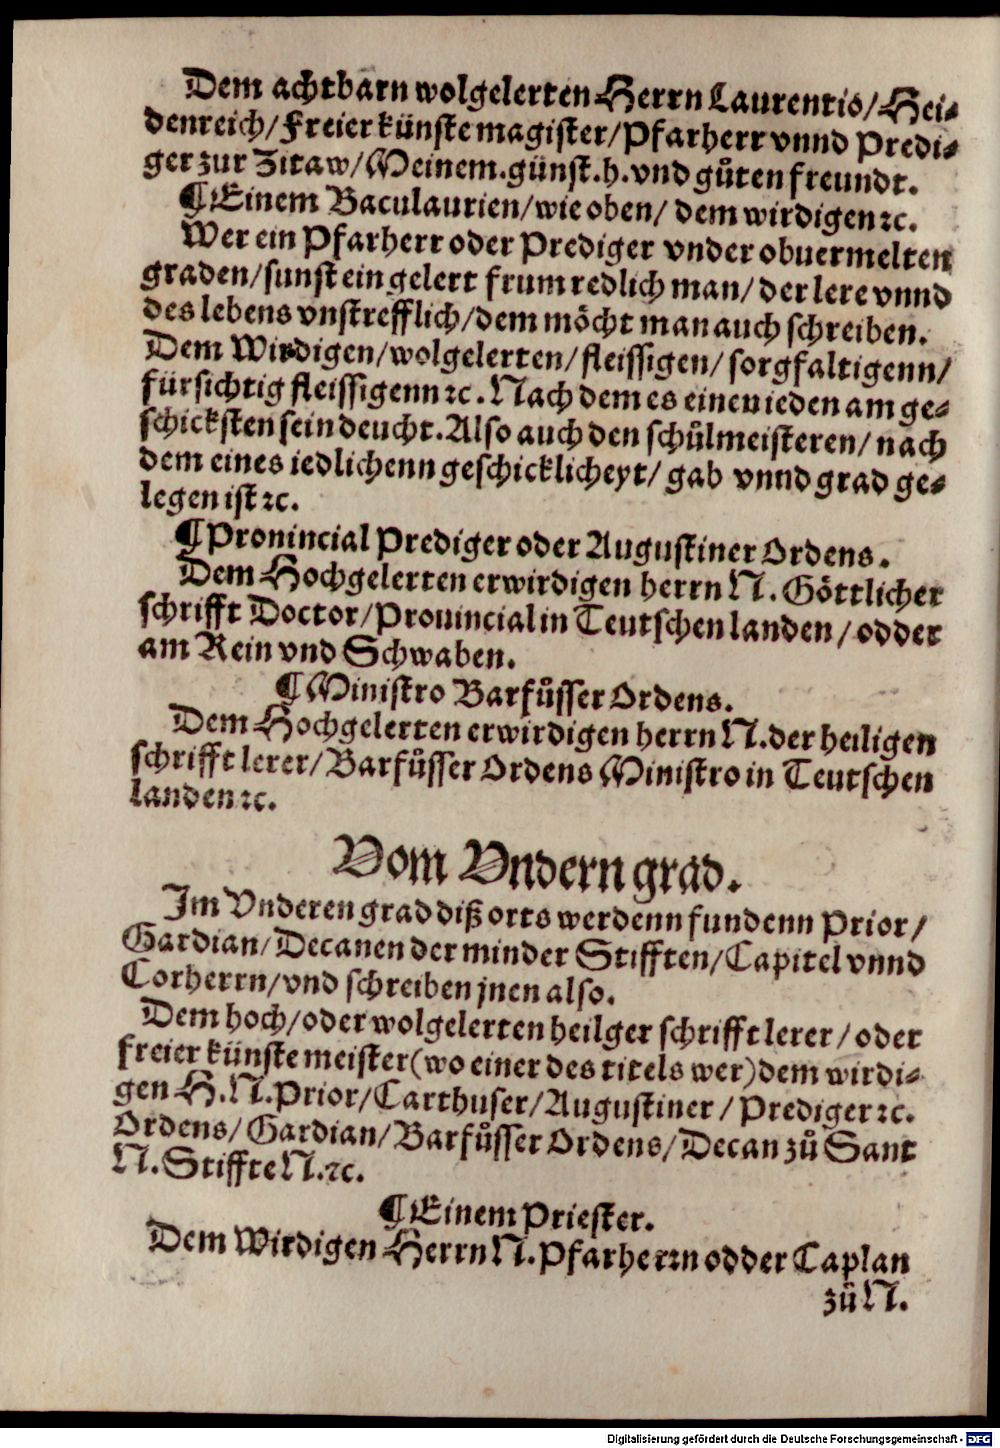 Dem achtbarn wolgelerten Herrn Laurentio/Hei⸗
denreich/Freier künste magister/Pfarherr vnnd Predi⸗
ger zur Zitaw/Meinem.günst.h.vnd gůten freundt.
¶Einem Baculaurien/wie oben/ dem wirdigen ꝛc.
Wer ein Pfarherr oder Prediger vnder obuermelten
graden/sunst ein gelert frum redlich man/ der lere vnnd
des lebens vnstrefflich/dem möcht man auch schreiben.
Dem Wirdigen/wolgelerten/ fleissigen/ sorgfaltigenn/
fürsichtig fleissigenn ꝛc. Nach dem es einen ieden am ge⸗
schicksten sein deucht. Also auch den schůlmeisteren/ nach
dem eines iedlichenn geschicklicheyt/ gab vnnd grad ge⸗
legen ist ꝛc.
¶Pronincial Prediger oder Augustiner Ordens.
Dem Hochgelerten erwirdigen herrn N. Göttlicher
schrifft Doctor/Prouincial in Teutschen landen/ odder
am Rein vnd Schwaben.
¶Ministro Barfůsser Ordens.
Dem Hochgelerten erwirdigen herrn N.der heiligen
schrifft lerer/Barfůsser Ordens Ministro in Teutschen
landen ꝛc.
Vom Vndern grad.
Im Vnderen grad diß orts werdenn fundenn Prior/
Gardian/Decanen der minder Stifften/Capitel vnnd
Corherrn/vnd schreiben jnen also.
Dem hoch/oder wolgelerten heilger schrifft lerer/ oder
freier künste meister(wo einer des titels wer)dem wirdi⸗
gen H.N.Prior/Carthuser/Augustiner/ Prediger ꝛc.
Ordens/ Gardian/Barfůsser Ordens/Decan zů Sant
N.Stiffte N.ꝛc.
¶Einem Priester.
Dem Wirdigen Herrn N.Pfarherrn odder Caplan
zů N.
Digitalisierung gefördert durch die Deutsche Forschungsgemeinschaft - DFG